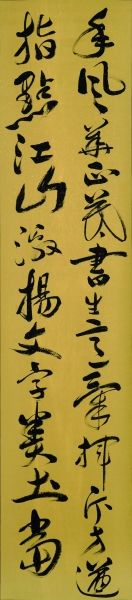 年風華正茂書生意氣揮斥方遒
指點江山激揚文字糞土當